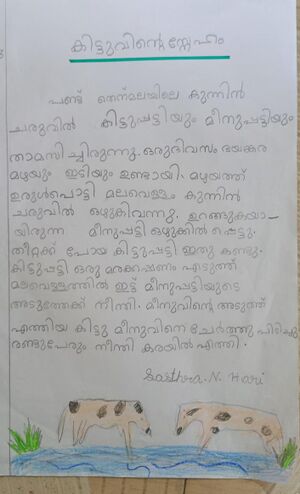 കിട്ടുവിന്റെ സ്നേഹം
പണ്ട് തെന്മലയിലെ കുന്നിൻ
ചരുവിൽ കിട്ടുപ്പട്ടിയും മീനുപ്പട്ടിയും
താമസിച്ചിരുന്നു. ഒരുദിവസം ഭയങ്കര
മഴയും ഇടിയും ഉണ്ടായി. മഴയത്ത്
ഉരുൾപൊട്ടി മലവെള്ളം കുന്നിൻ
ചരുവിൽ ഒഴുകിവന്നു. ഉറങ്ങുകയാ-
യിരുന്ന മീനുപ്പട്ടി ഒഴുക്കിൽ പ്പെട്ടു.
തീറ്റക്ക് പോയ കിട്ടുപ്പട്ടി ഇതു കണ്ടു.
കിട്ടുപ്പട്ടി ഒരു മരക്കഷണം എടുത്ത്
മലവെള്ളത്തിൽ ഇട്ട് മീനുപ്പട്ടിയുടെ
അടുത്തേക്ക് നീന്തി. മീനുവിന്റെ അടുത്ത്
എത്തിയ കിട്ടു മീനുവിനെ ചേർത്തു പിടിച്ചു
രണ്ടുപേരും നീന്തി കരയിൽ എത്തി.
N. Hari